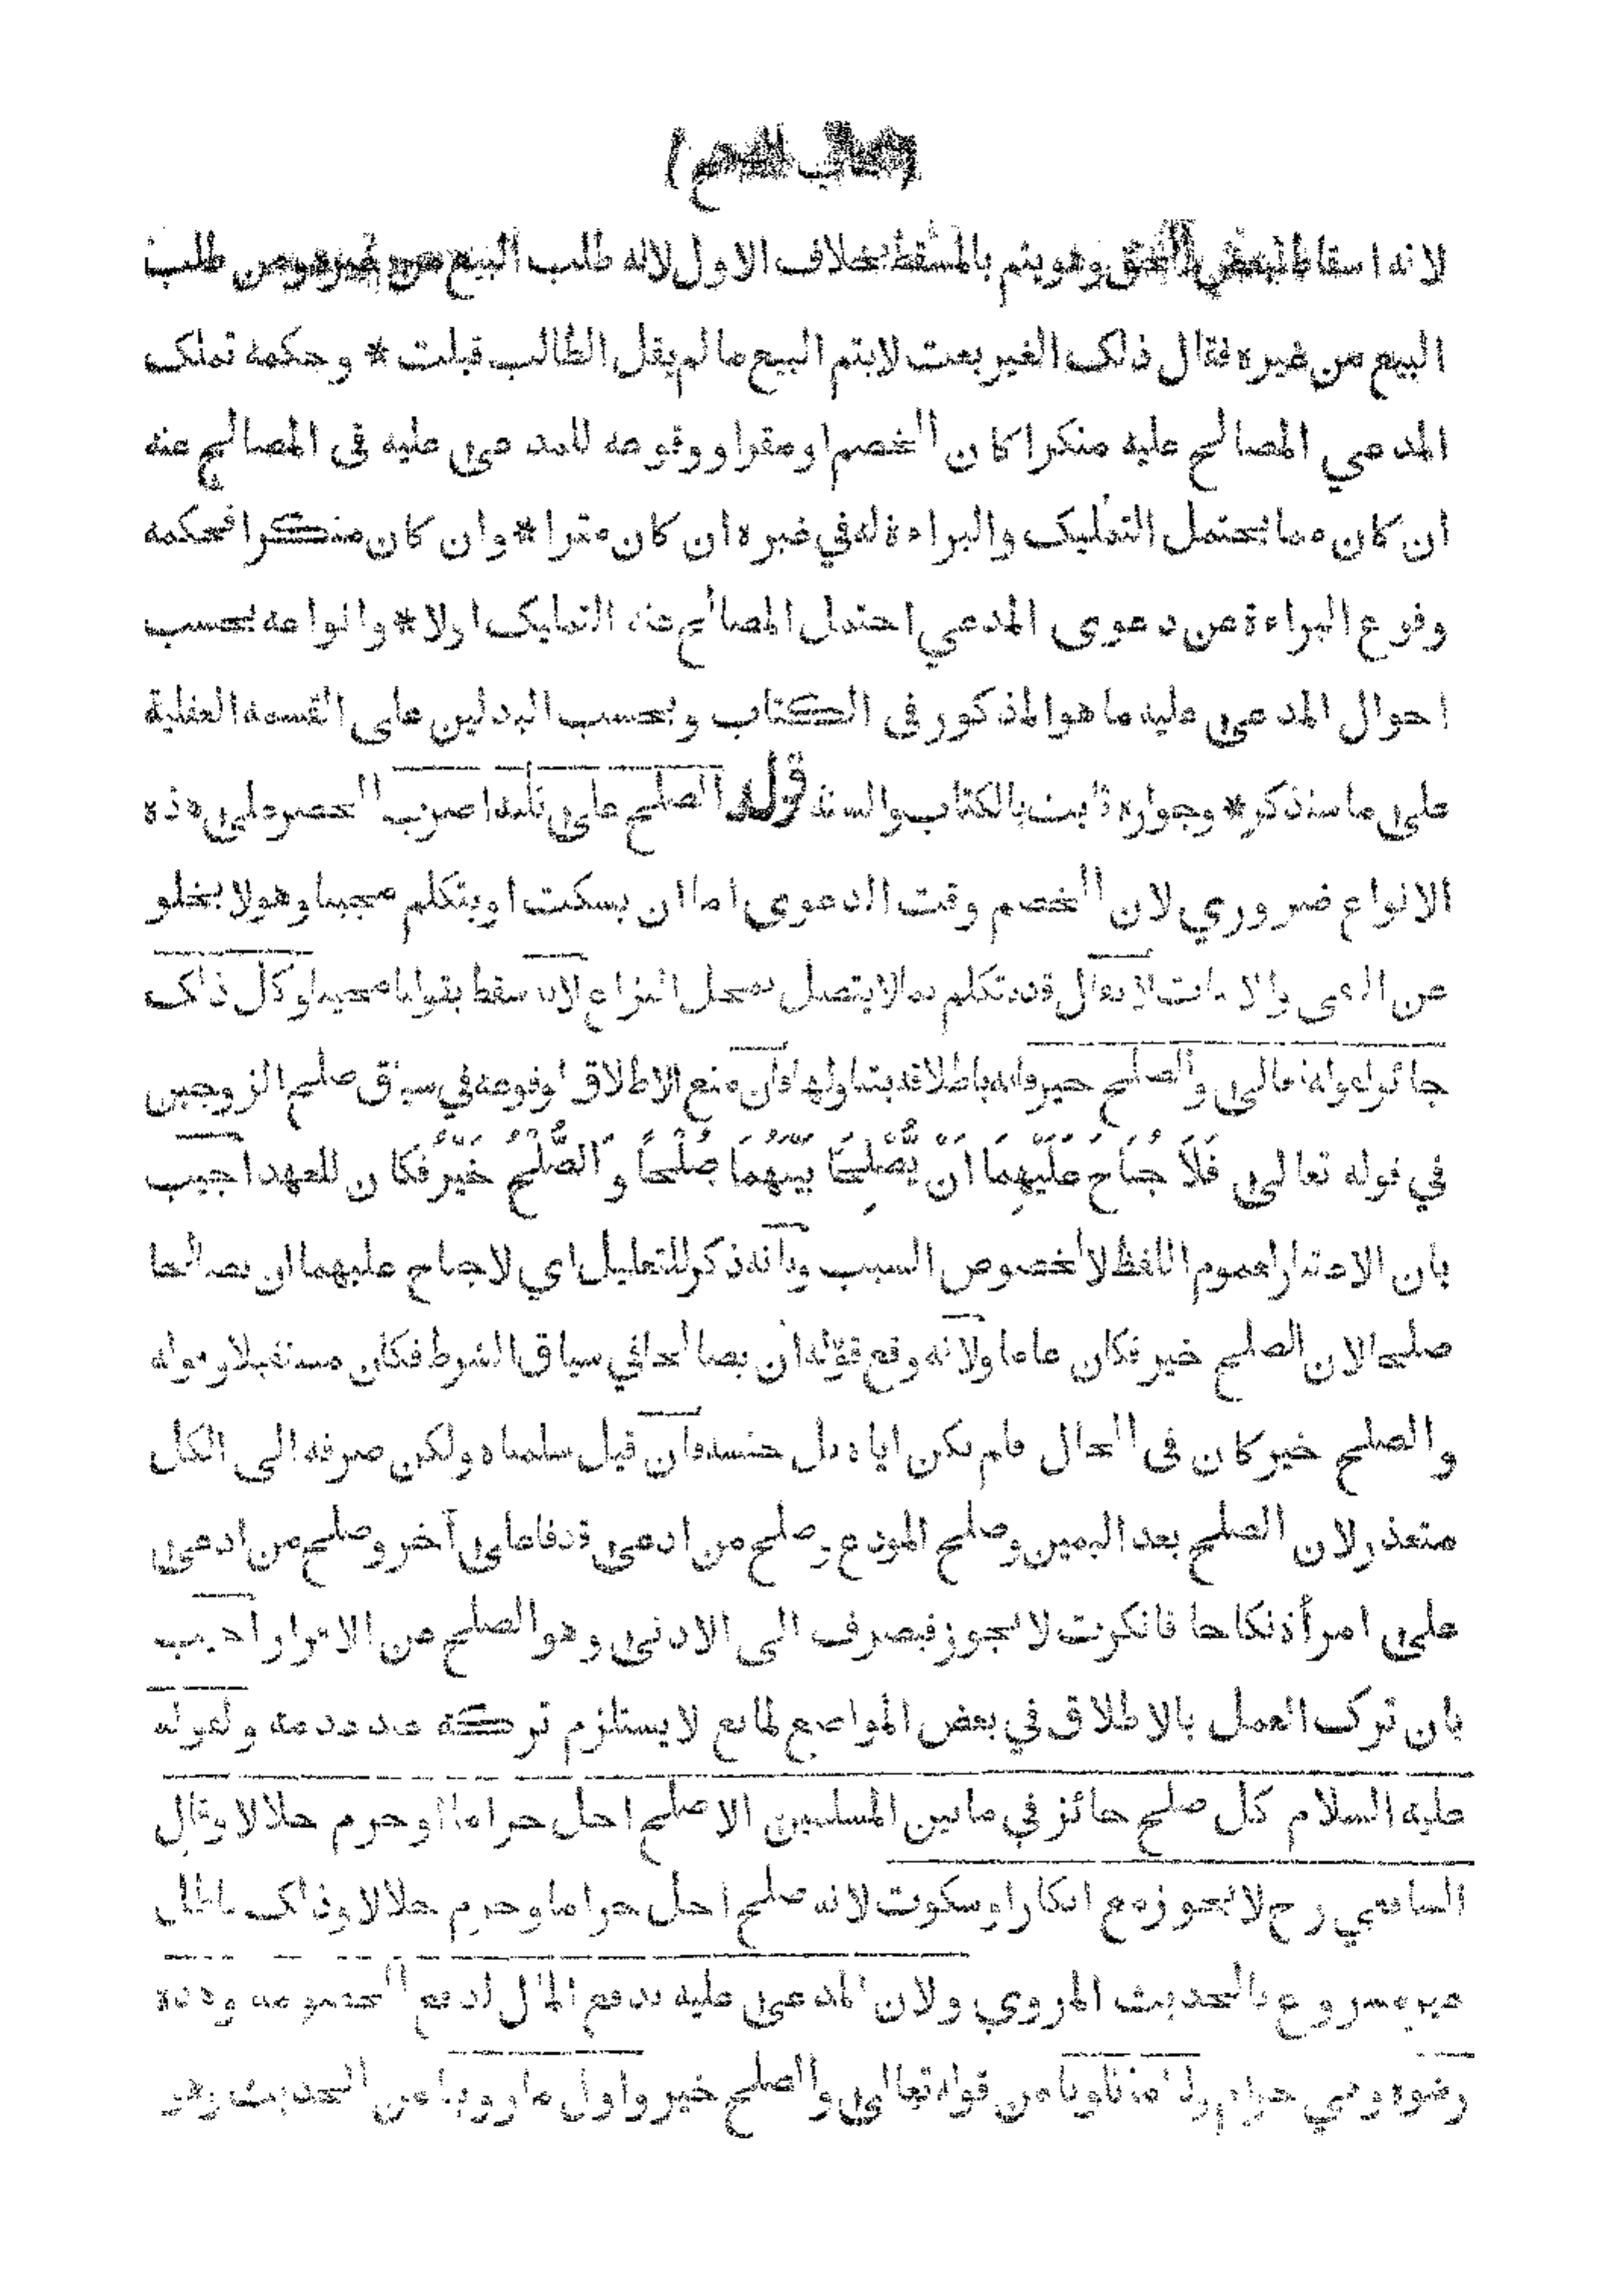 (كتاب الصلح)
لانه اسقاط لبعض الحق وهو يتم بالمسقط بخلاف الاول لانه طلب البيع من غيره ومن طلب
البيع من غيره فقال ذلك الغير بعت لا يتم البيع ما لم يقل الطالب قبلت * وحكمه تملك
المدعي المصالح عليه منكرا كان الخصم او مقرا ووقوعه للمدعى عليه فى المصالح عنه
ان كان مما يحتمل التمليك والبراءة له في غيره ان كان مقرا * وان كان منكرا فحكمه
وقوع البراءة عن دعوى المدعي احتمل المصالح عنه التمليك اولا * وانواعه بحسب
احوال المدعى عليه ما هو المذكور فى الكتاب وبحسب البدلين على القسمة العقلية
على ما سنذكر * وجوازه ثابت بالكتاب والسنة قوله الصلح على ثلثة اضرب الحصر على هذه
الانواع ضروري لان الخصم وقت الدعوى اما ان يسكت او يتكلم مجيبا وهو لا يخلو
عن النفى والاثبات لا يقال قد تكلم بما لا يتصل بمحل النزاع لانه سقط بقولنا مجيبا وكل ذلك
جائز لقوله تعالى والصلح خير فانه باطلاقه يتناولها فان منع الاطلاق لوقوعه في سياق صلح الزوجين
في قوله تعالى فَلَا جُنَاحَ عَلَيْهِمَا اَنْ يُّصْلِحَا بَيْنَهُمَا صُلْحًا وَالصُّلْحُ خَيْرٌ فكان للعهد اجيب
بان الاعتبار لعموم اللفظ لا لخصوص السبب وبانه ذكر للتعليل اي لا جناح عليهما ان يصالحا
صلحا لان الصلح خير فكان عاما ولانه وقع قوله ان يصالحا في سياق الشرط فكان مستقبلا وقوله
والصلح خير كان فى الحال فلم يكن اياه بل جنسه فان قيل سلمناه ولكن صرفه الى الكل
متعذر لان الصلح بعد اليمين وصلح المودع وصلح من ادعى قذفا على آخر وصلح من ادعى
على امرأة نكاحا فانكرت لا يجوز فيصرف الى الادنى وهو الصلح عن الاقرار اجيب
بان ترك العمل بالاطلاق في بعض المواضع لمانع لا يستلزم تركه عند عدمه ولقوله
عليه السلام كل صلح جائز في ما بين المسلمين الا صلح احل حراما او حرم حلالا وقال
الشافعي رح لا يجوز مع انكار او سكوت لانه صلح احل حراما وحرم حلالا وذلك باطل
غير مشروع بالحديث المروي ولان المدعى عليه يدفع المال لدفع الخصومة وهذه
رشوة وهي حرام ولنا ما تلونا من قوله تعالى والصلح خير واول ما روينا من الحديث وهو